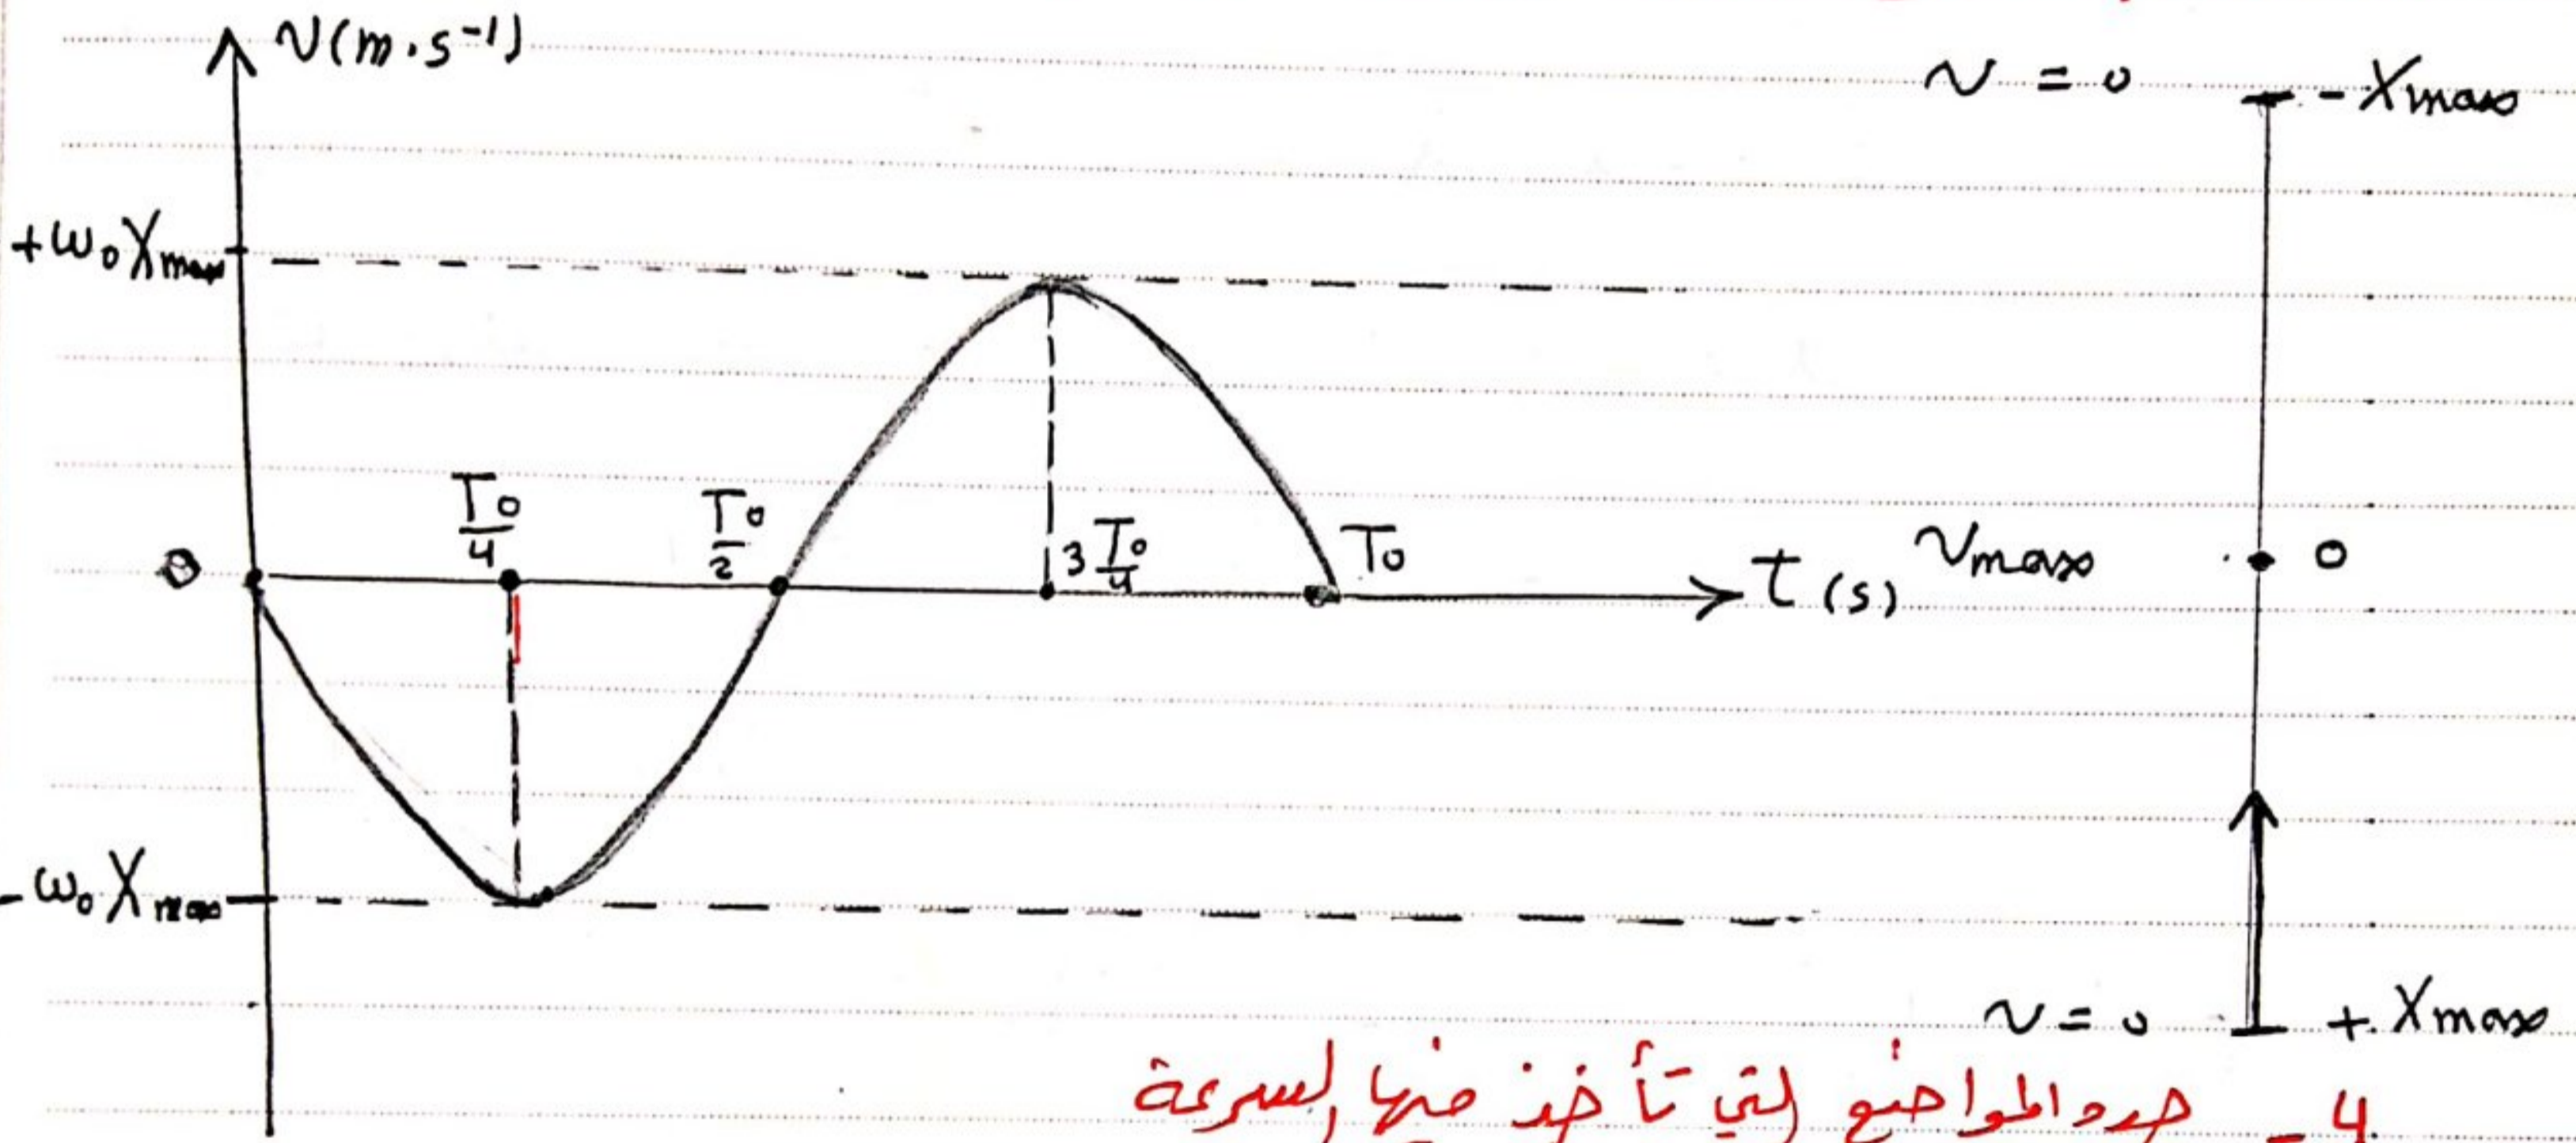 v(m.s⁻¹)
v = 0
- Xmax
+ω₀Xmax
T₀/4
T₀/2
3T₀/4
T₀
0
t(s)
vmax
0
-ω₀Xmax
v=0
+ Xmax
4 - حدد المواضع التي تأخذ فيها السرعة